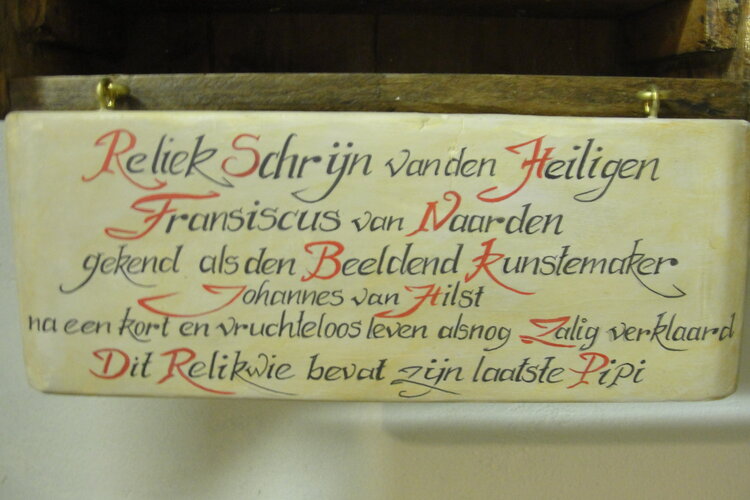 Reliek Schrijn van den Heiligen
Fransiscus van Naarden
gekend als den Beeldend Kunstemaker
Johannes van Hilst
na een kort en vruchteloos leven alsnog Zalig verklaard
Dit Relikwie bevat zijn laatste Pipi